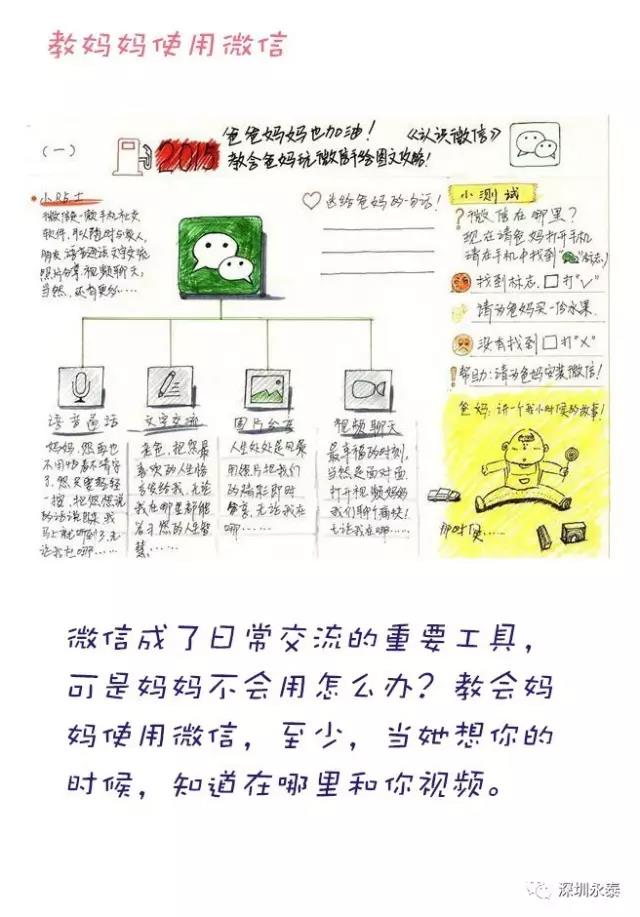 教妈妈使用微信
(一)
2015
爸爸妈妈也加油！
《认识微信》
教会爸妈玩微信手绘图文攻略！
小贴士
微信是一款手机社交
软件，可以随时与家人，
朋友 语音通话 文字交流
照片分享 视频聊天，
当然，还有更多……
送给爸妈的一句话！
小测试
微信在哪里？
现在请爸妈打开手机
请在手机中找到“标志”
找到标志，□打“√”
请为爸妈买一份水果
没有找到□打“×”
帮助：请为爸妈安装微信！
爸妈：讲一个我小时候的故事！
那时候……
语音通话
妈妈，您再也
不用
了，您只要轻轻一
按，把您想说
的话说出来，我
马上就听到了，无
论我在哪……
文字交流
老爸，把您最
喜欢的人生格
言发给我，无论
我在哪里都能
学习您的人生智
慧……
图片分享
人生处处是风景
用照片把我们
的精彩即时
分享，无论我在
哪……
视频聊天
最幸福的时刻，
当然是面对面，
打开视频妈妈
我们聊个痛快！
无论我在哪……
微信成了日常交流的重要工具，
可是妈妈不会用怎么办？教会妈
妈使用微信，至少，当她想你的
时候，知道在哪里和你视频。
深圳永泰